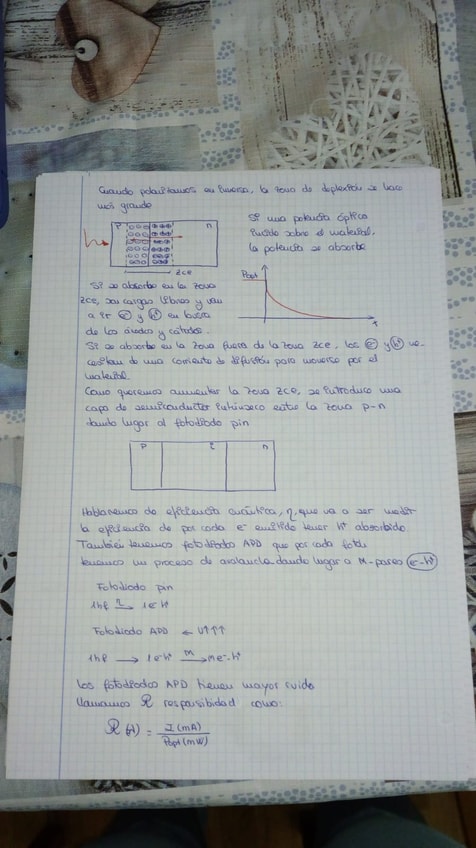 Cuando polarizamos en inversa, la zona de deplexión se hace
más grande
P
n
zce
Si una potencia óptica
incide sobre el material,
la potencia se absorbe
Popt
Si se absorbe en la zona
zce, son cargas libres y van
a ir e⁻ y h⁺ en busca
de los ánodos y cátodos.
Si se absorbe en la zona fuera de la zona zce, los e⁻ y h⁺ ne-
cesitan de una corriente de difusión para moverse por el
material.
Como queremos aumentar la zona zce, se introduce una
capa de semiconductor intrínseco entre la zona p-n
dando lugar al fotodiodo pin
p i n
Hablaremos de eficiencia cuántica, η, que va a ser medir
la eficiencia de por cada e⁻ emitido tener h⁺ absorbido.
También tenemos fotodiodos APD que por cada fotón
tenemos un proceso de avalancha dando lugar a M-pares e⁻-h⁺
Fotodiodo pin
1hf η→ 1e⁻h⁺
Fotodiodo APD ← U↑↑↑
1hf → 1e⁻h⁺ M→ me⁻-h⁺
Los fotodiodos APD tienen mayor ruido
Llamamos R responsibidad como:
R = I(mA) / Popt(mW)